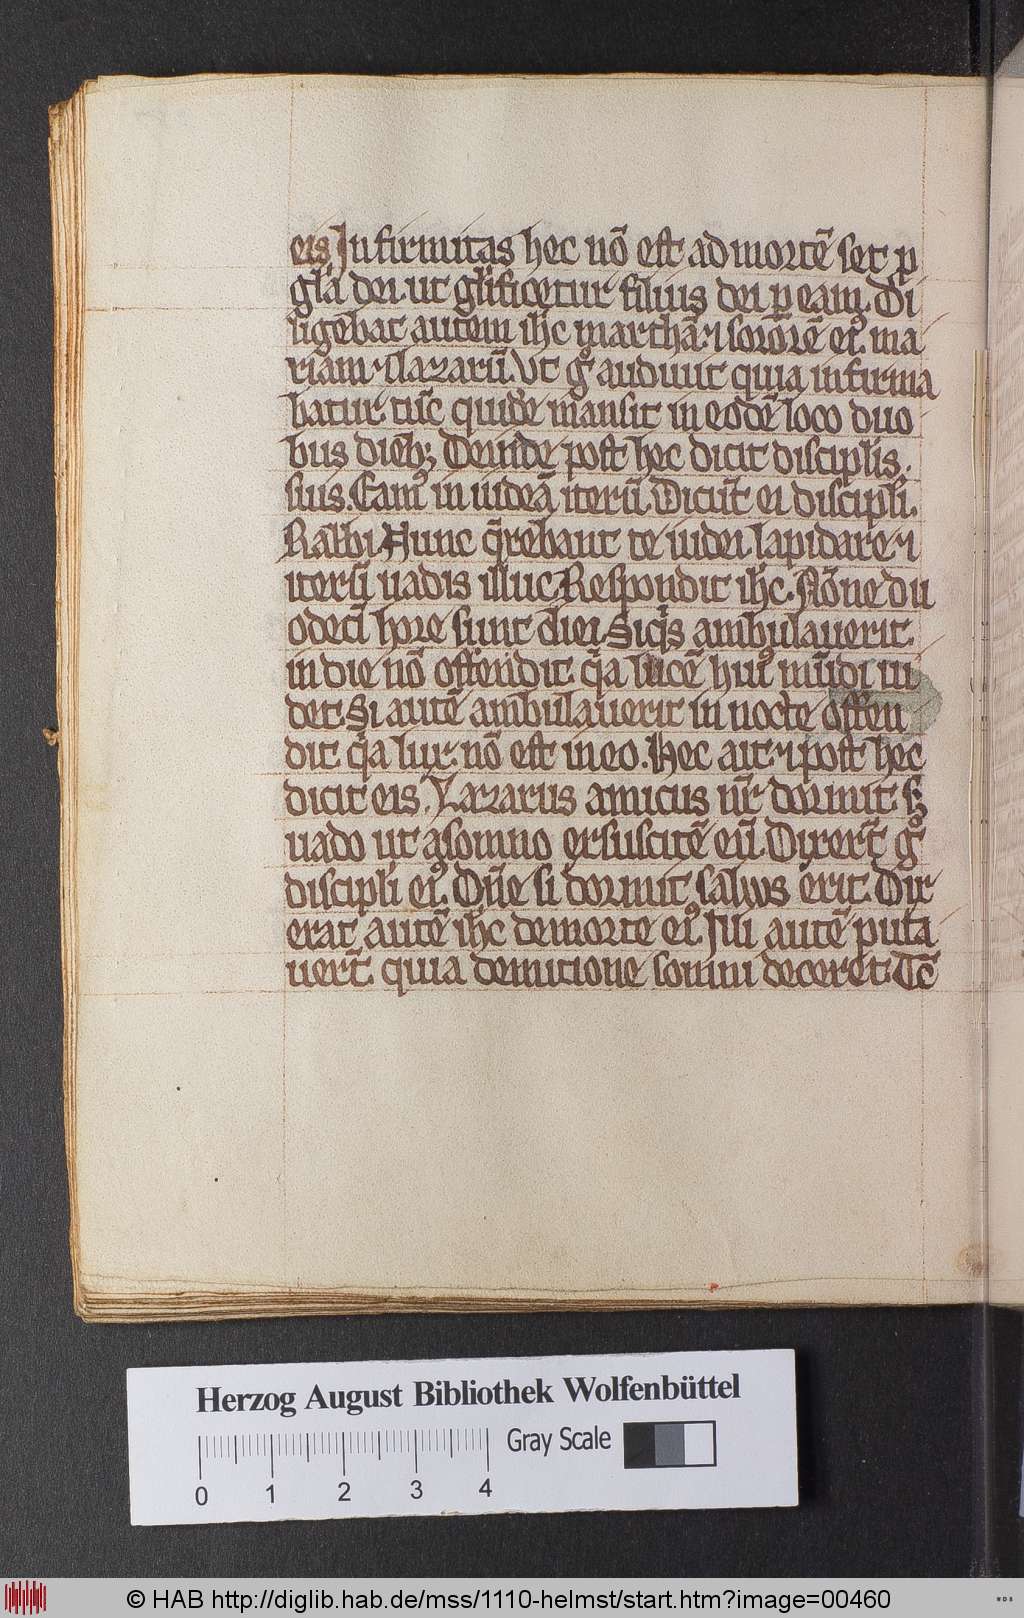 eis Infirmitas hec nō est ad mortē set ꝑ
gl̄a dei. ut gl̄ificetur filius dei ꝑ eam. Di
ligebat autem ih̄c marthā ⁊ sororē eiꝰ. ma
riam ⁊ lazarū. Vt gͦ audiuit quia infirma
batur. tūc quidē mansit in eodē loco duo
bus dieb; Deinde post hec dicit discipl̄is.
suis. Eamꝰ in iudeā iterū. Dicūt ei discipl̄i.
Rabbi. Nunc q̄rebant te iudei lapidare ⁊
iterū uadis illuc Respondit ih̄c. Nōne du
odecī hore sunt diei. Siqͥs ambulauerit
in die nō offendit. qͣa lucē huiꝰ mūdi ui
det. Si autē ambulauerit in nocte offen
dit qͣa lux nō est in eo. Hec ait ⁊ post hec
dicit eis. Lazarus amicus nr̄ dormit. s;
uado ut a somno exsuscitē eū. Dixert̄ gͦ
discipl̄i eiꝰ. Dn̄e si dormit saluus erit. Dix
erat autē ih̄c de morte eiꝰ. Illi autē puta
uert̄. quia dormitione somni diceret. Tc̄
Herzog August Bibliothek Wolfenbüttel
Gray Scale
0 1 2 3 4
© HAB http://diglib.hab.de/mss/1110-helmst/start.htm?image=00460